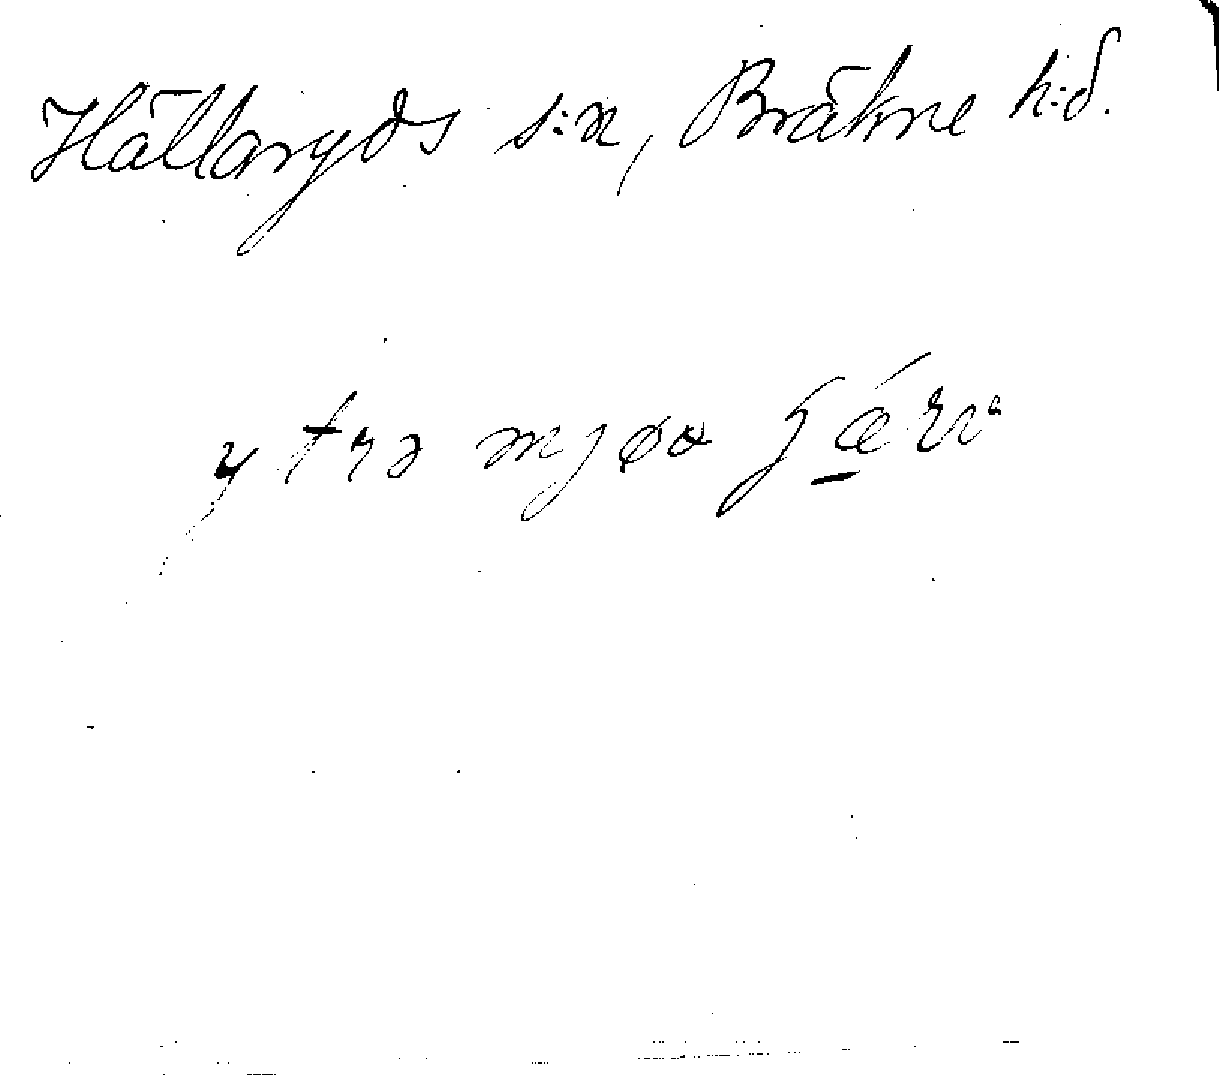 Hällaryds s:n, Bräkne h:d.
ytrə mjøα